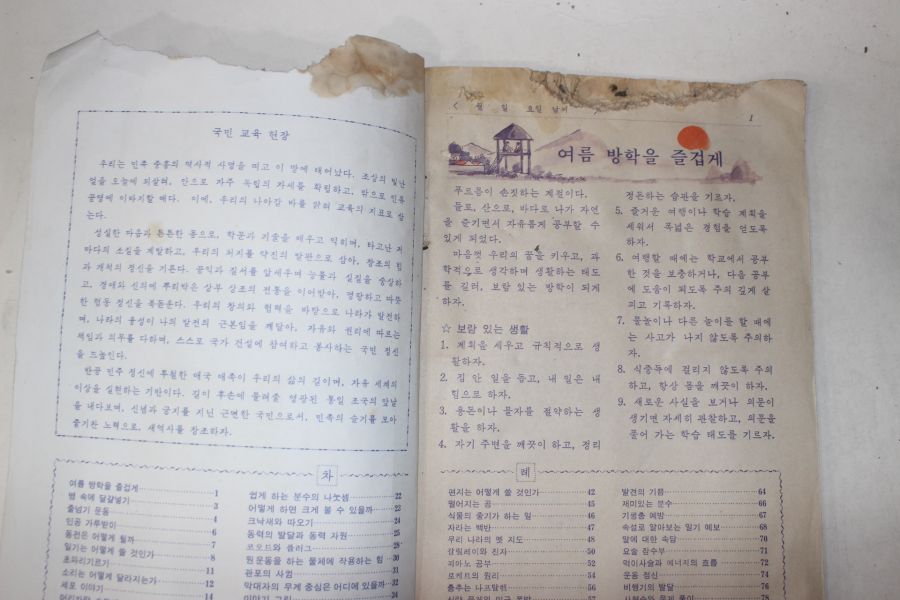 국민 교육 헌장
우리는 민족 중흥의 역사적 사명을 띠고 이 땅에 태어났다. 조상의 빛난
얼을 오늘에 되살려, 안으로 자주 독립의 자세를 확립하고, 밖으로 인류
공영에 이바지할 때다. 이에, 우리의 나아갈 바를 밝혀 교육의 지표로 삼
는다.
성실한 마음과 튼튼한 몸으로, 학문과 기술을 배우고 익히며, 타고난 저
마다의 소질을 계발하고, 우리의 처지를 약진의 발판으로 삼아, 창조의 힘
과 개척의 정신을 기른다. 공익과 질서를 앞세우며 능률과 실질을 숭상하
고, 경애와 신의에 뿌리박은 상부 상조의 전통을 이어받아, 명랑하고 따뜻
한 협동 정신을 북돋운다. 우리의 창의와 협력을 바탕으로 나라가 발전하
며, 나라의 융성이 나의 발전의 근본임을 깨달아, 자유와 권리에 따르는
책임과 의무를 다하며, 스스로 국가 건설에 참여하고 봉사하는 국민 정신
을 드높인다.
반공 민주 정신에 투철한 애국 애족이 우리의 삶의 길이며, 자유 세계의
이상을 실현하는 기반이다. 길이 후손에 물려줄 영광된 통일 조국의 앞날
을 내다보며, 신념과 긍지를 지닌 근면한 국민으로서, 민족의 슬기를 모아
줄기찬 노력으로, 새역사를 창조하자.
차
여름 방학을 즐겁게 1
병 속에 달걀넣기 3
줄넘기 운동 4
인공 가루받이 6
동전은 어떻게 될까 7
일기는 어떻게 쓸 것인가 8
초파리기르기 11
소리는 어떻게 달라지는가 12
세포 이야기 14
쉽게 하는 분수의 나눗셈 22
어떻게 하면 크게 볼 수 있을까 23
크낙새와 따오기 24
동력의 발달과 동력 자원 25
코오드와 플러그 28
원운동을 하는 물체에 작용하는 힘 30
관포의 사귐 31
막대자의 무게 중심은 어디에 있을까 32
34
월 일 요일 날씨
1
여름 방학을 즐겁게
푸르름이 손짓하는 계절이다.
들로, 산으로, 바다로 나가 자연
을 즐기면서 자유롭게 공부할 수
있게 되었다.
마음껏 우리의 꿈을 키우고, 과
학적으로 생각하며 생활하는 태도
를 길러, 보람 있는 방학이 되게
하자.
☆ 보람 있는 생활
1. 계획을 세우고 규칙적으로 생
활하자.
2. 집 안 일을 돕고, 내 일은 내
힘으로 하자.
3. 용돈이나 물자를 절약하는 생
활을 하자.
4. 자기 주변을 깨끗이 하고, 정리
정돈하는 습관을 기르자.
5. 즐거운 여행이나 학습 계획을
세워서 폭넓은 경험을 얻도록
하자.
6. 여행할 때에는 학교에서 공부
한 것을 보충하거나, 다음 공부
에 도움이 되도록 주의 깊게 살
피고 기록하자.
7. 물놀이나 다른 놀이를 할 때에
는 사고가 나지 않도록 주의하
자.
8. 식중독에 걸리지 않도록 주의
하고, 항상 몸을 깨끗이 하자.
9. 새로운 사실을 보거나 의문이
생기면 자세히 관찰하고, 의문을
풀어 가는 학습 태도를 기르자.
례
편지는 어떻게 쓸 것인가 42
떨어지는 공 45
식물의 줄기가 하는 일 46
자라는 백반 47
우리 나라의 옛 지도 48
갈릴레이와 진자 50
피아노 공부 52
로케트의 원리 54
춤추는 나프탈렌 56
57
발견의 기쁨 64
재미있는 분수 66
기생충 예방 67
속설로 알아보는 일기 예보 68
말에 대한 속담 70
요술 장수부 71
먹이사슬과 에너지의 흐름 72
운동 정신 74
비행기의 발달 76
78